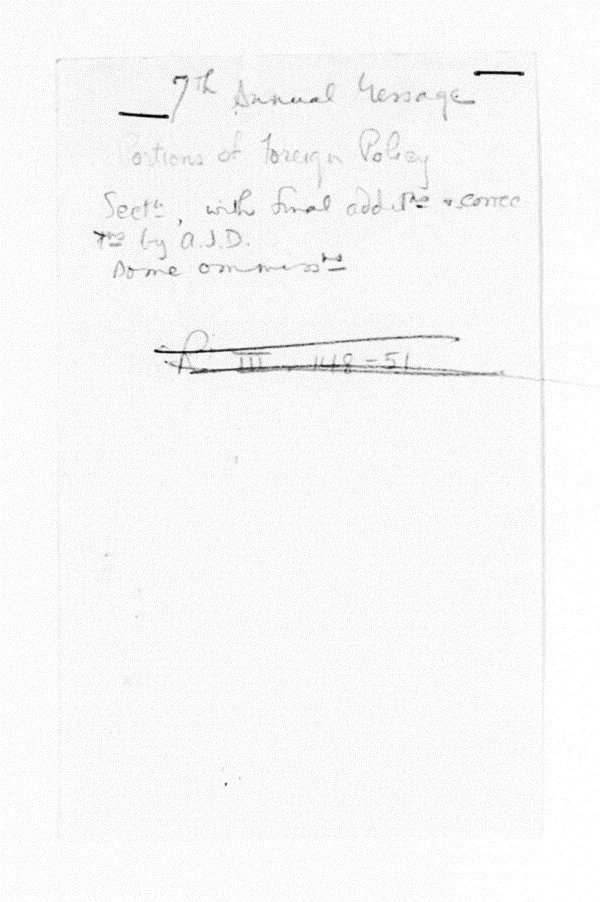 7th Annual Message
Portions of Foreign Policy
Sectn, with final addit ns & correc
tns by A.J.D.
Some ommiss ns
R. III 148-51